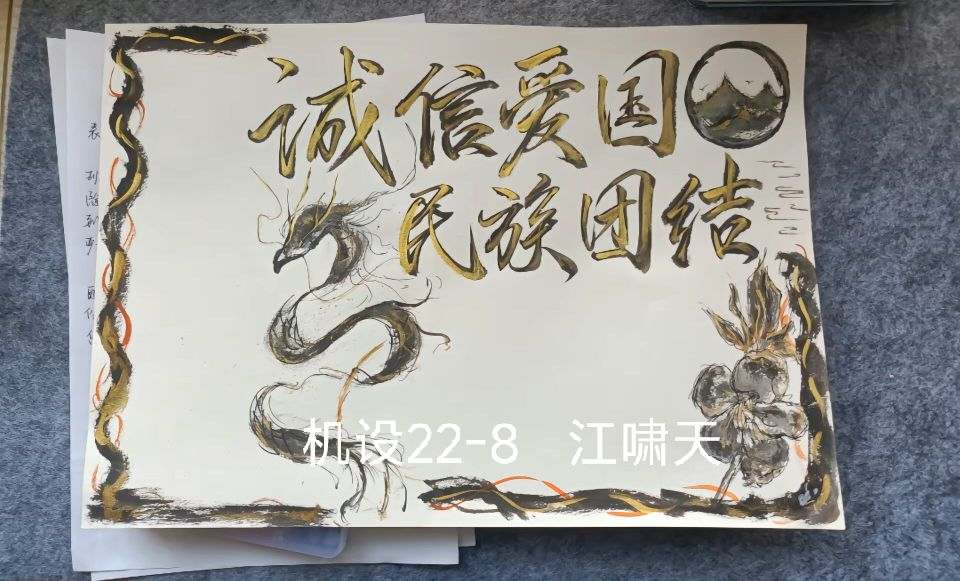 诚信爱国
民族团结
机设22-8 江啸天